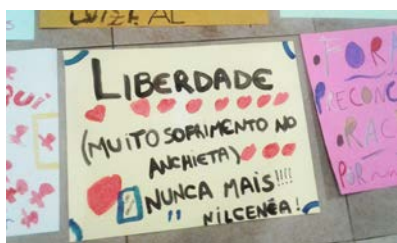 LUIZA AL
LIBERDADE
(MUITO SOFRIMENTO NO
ANCHIETA)
NUNCA MAIS!!!!
NILCENÉA!
QUI
FORA
PRECONC
RAC
POR